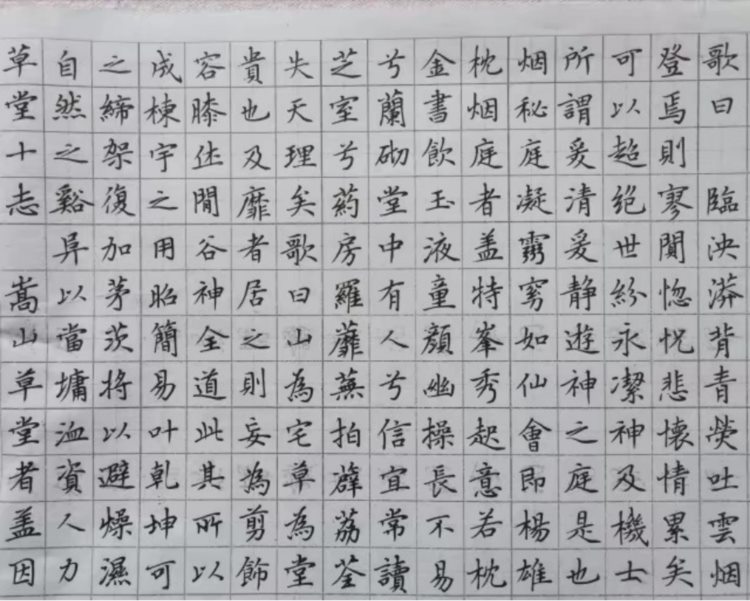 草堂十志 嵩山草堂者盖因
自然之谿阜以當墉洫資人力
之締架復加茅茨將以避燥濕
成棟宇之用昭簡易叶乾坤可
容膝休閒谷神全道此其所以
貴也及靡者居之則妄為剪飾
失天理矣歌曰山為宅草為堂
芝室兮葯房羅蘼蕪拍薜荔荃
兮蘭砌堂中有人兮信宜常讀
金書飲玉液童顏幽操長不易
枕烟庭者盖特峯秀起意若枕
烟秘庭凝霧窅如仙會即楊雄
所謂爰清爰静遊神之庭是也
可以超絕世紛永潔神及機士
登焉則寥閴惚怳悲懷情累矣
歌曰 臨泱漭背青熒吐雲烟